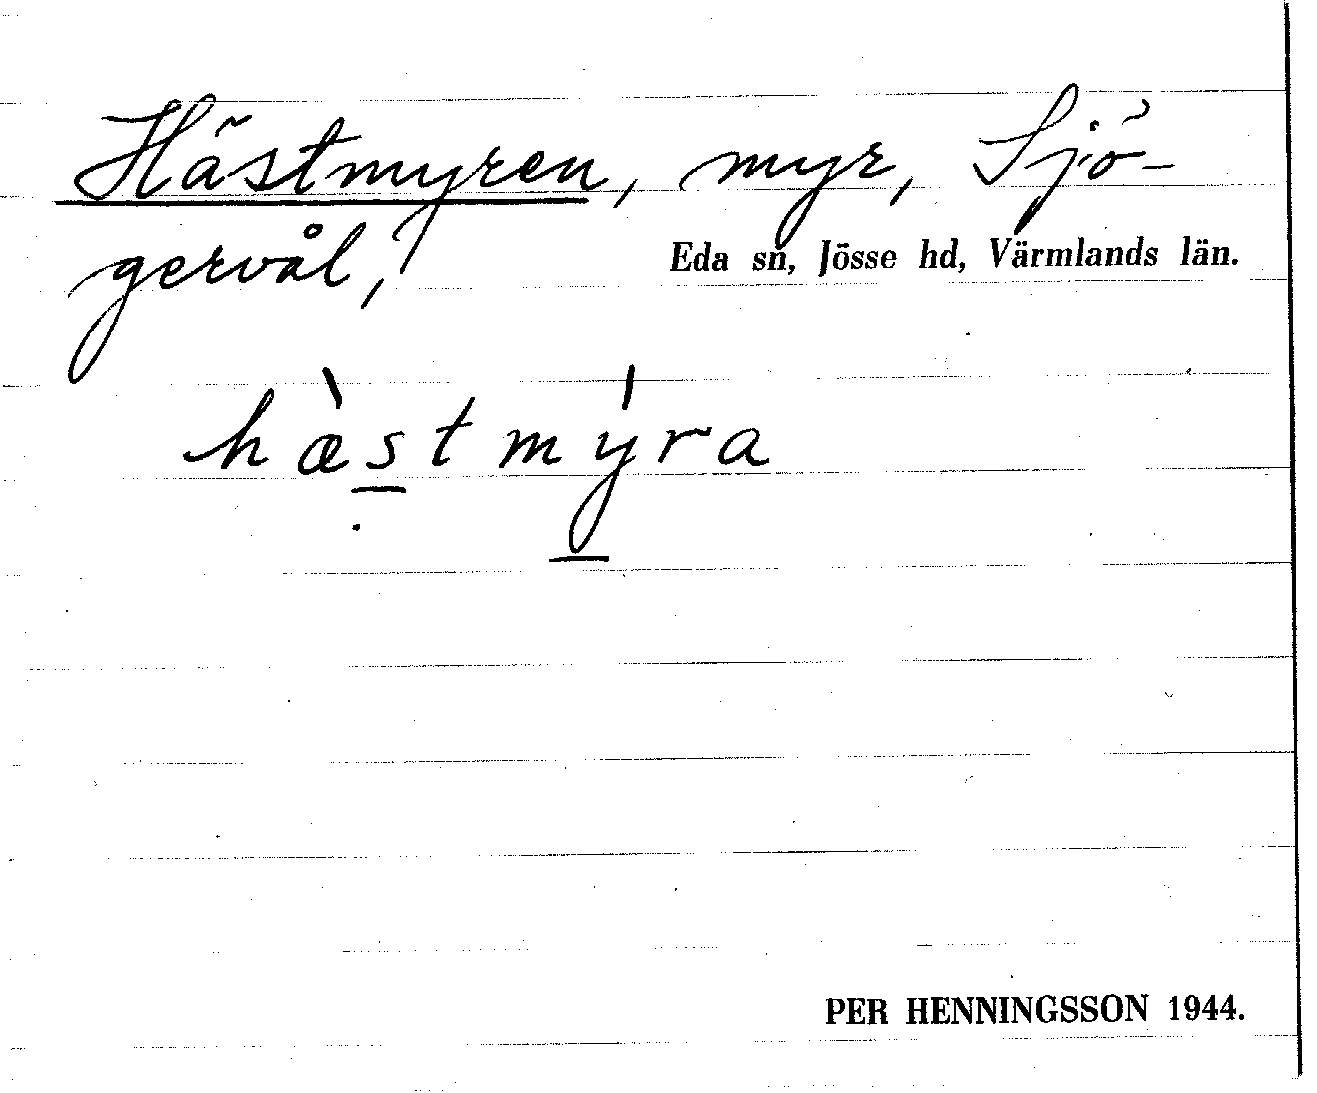 Hästmyren, myr, Sjö-
gervål,
Eda sn, Jösse hd, Värmlands län.
hæ̀stmýra
PER HENNINGSSON 1944.